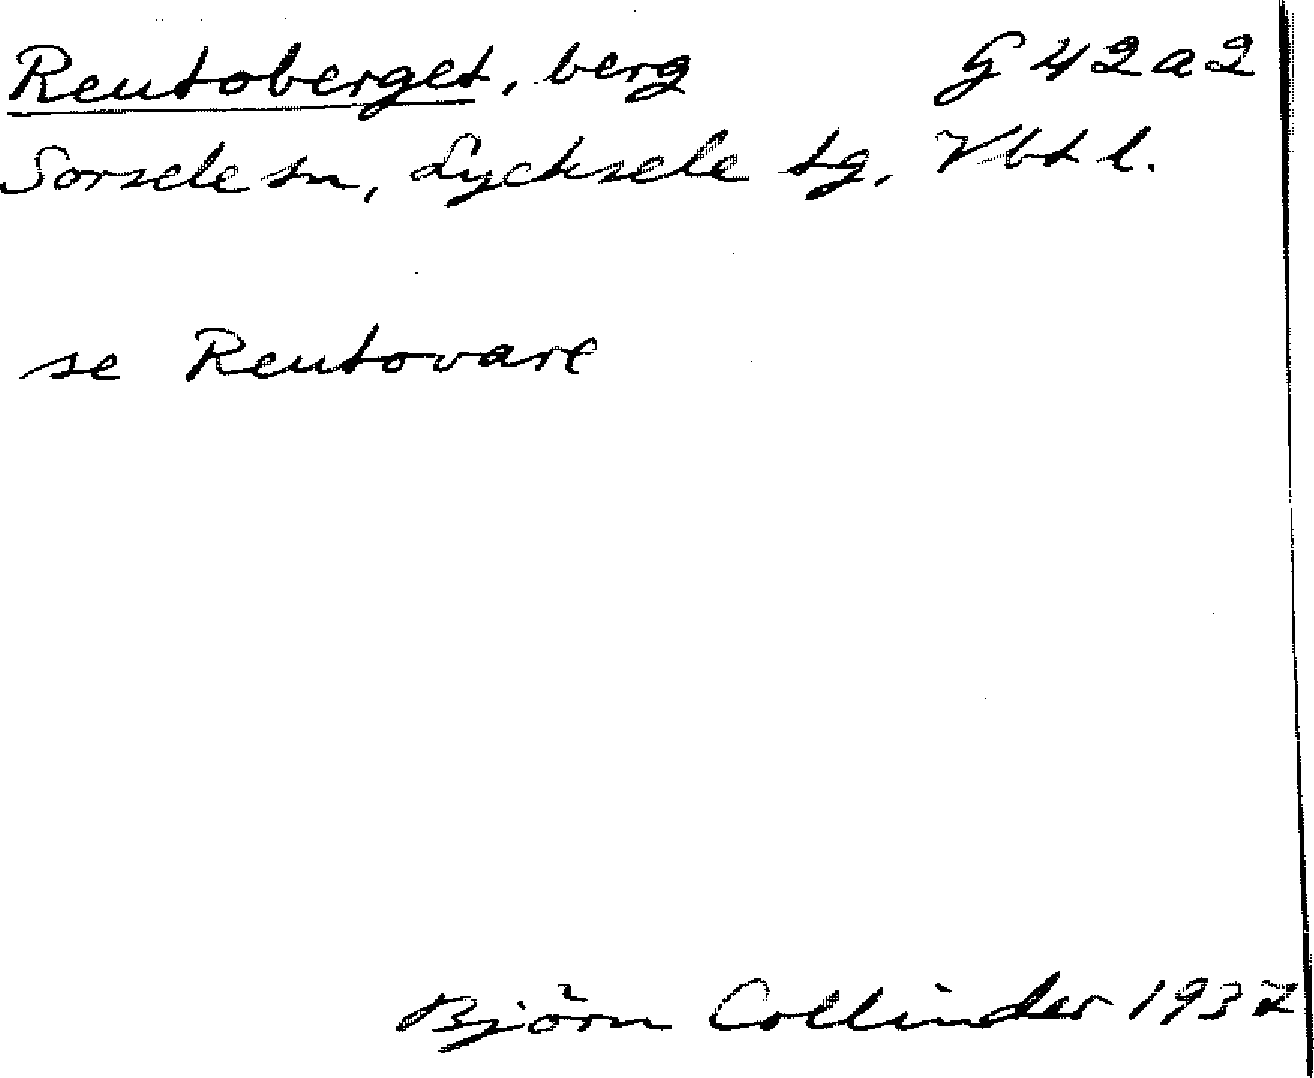 Reutoberget, berg G 42 a 2
Sorsele sn, Lycksele tg, Vbt l.
se Reutovare
Björn Collinder 1937